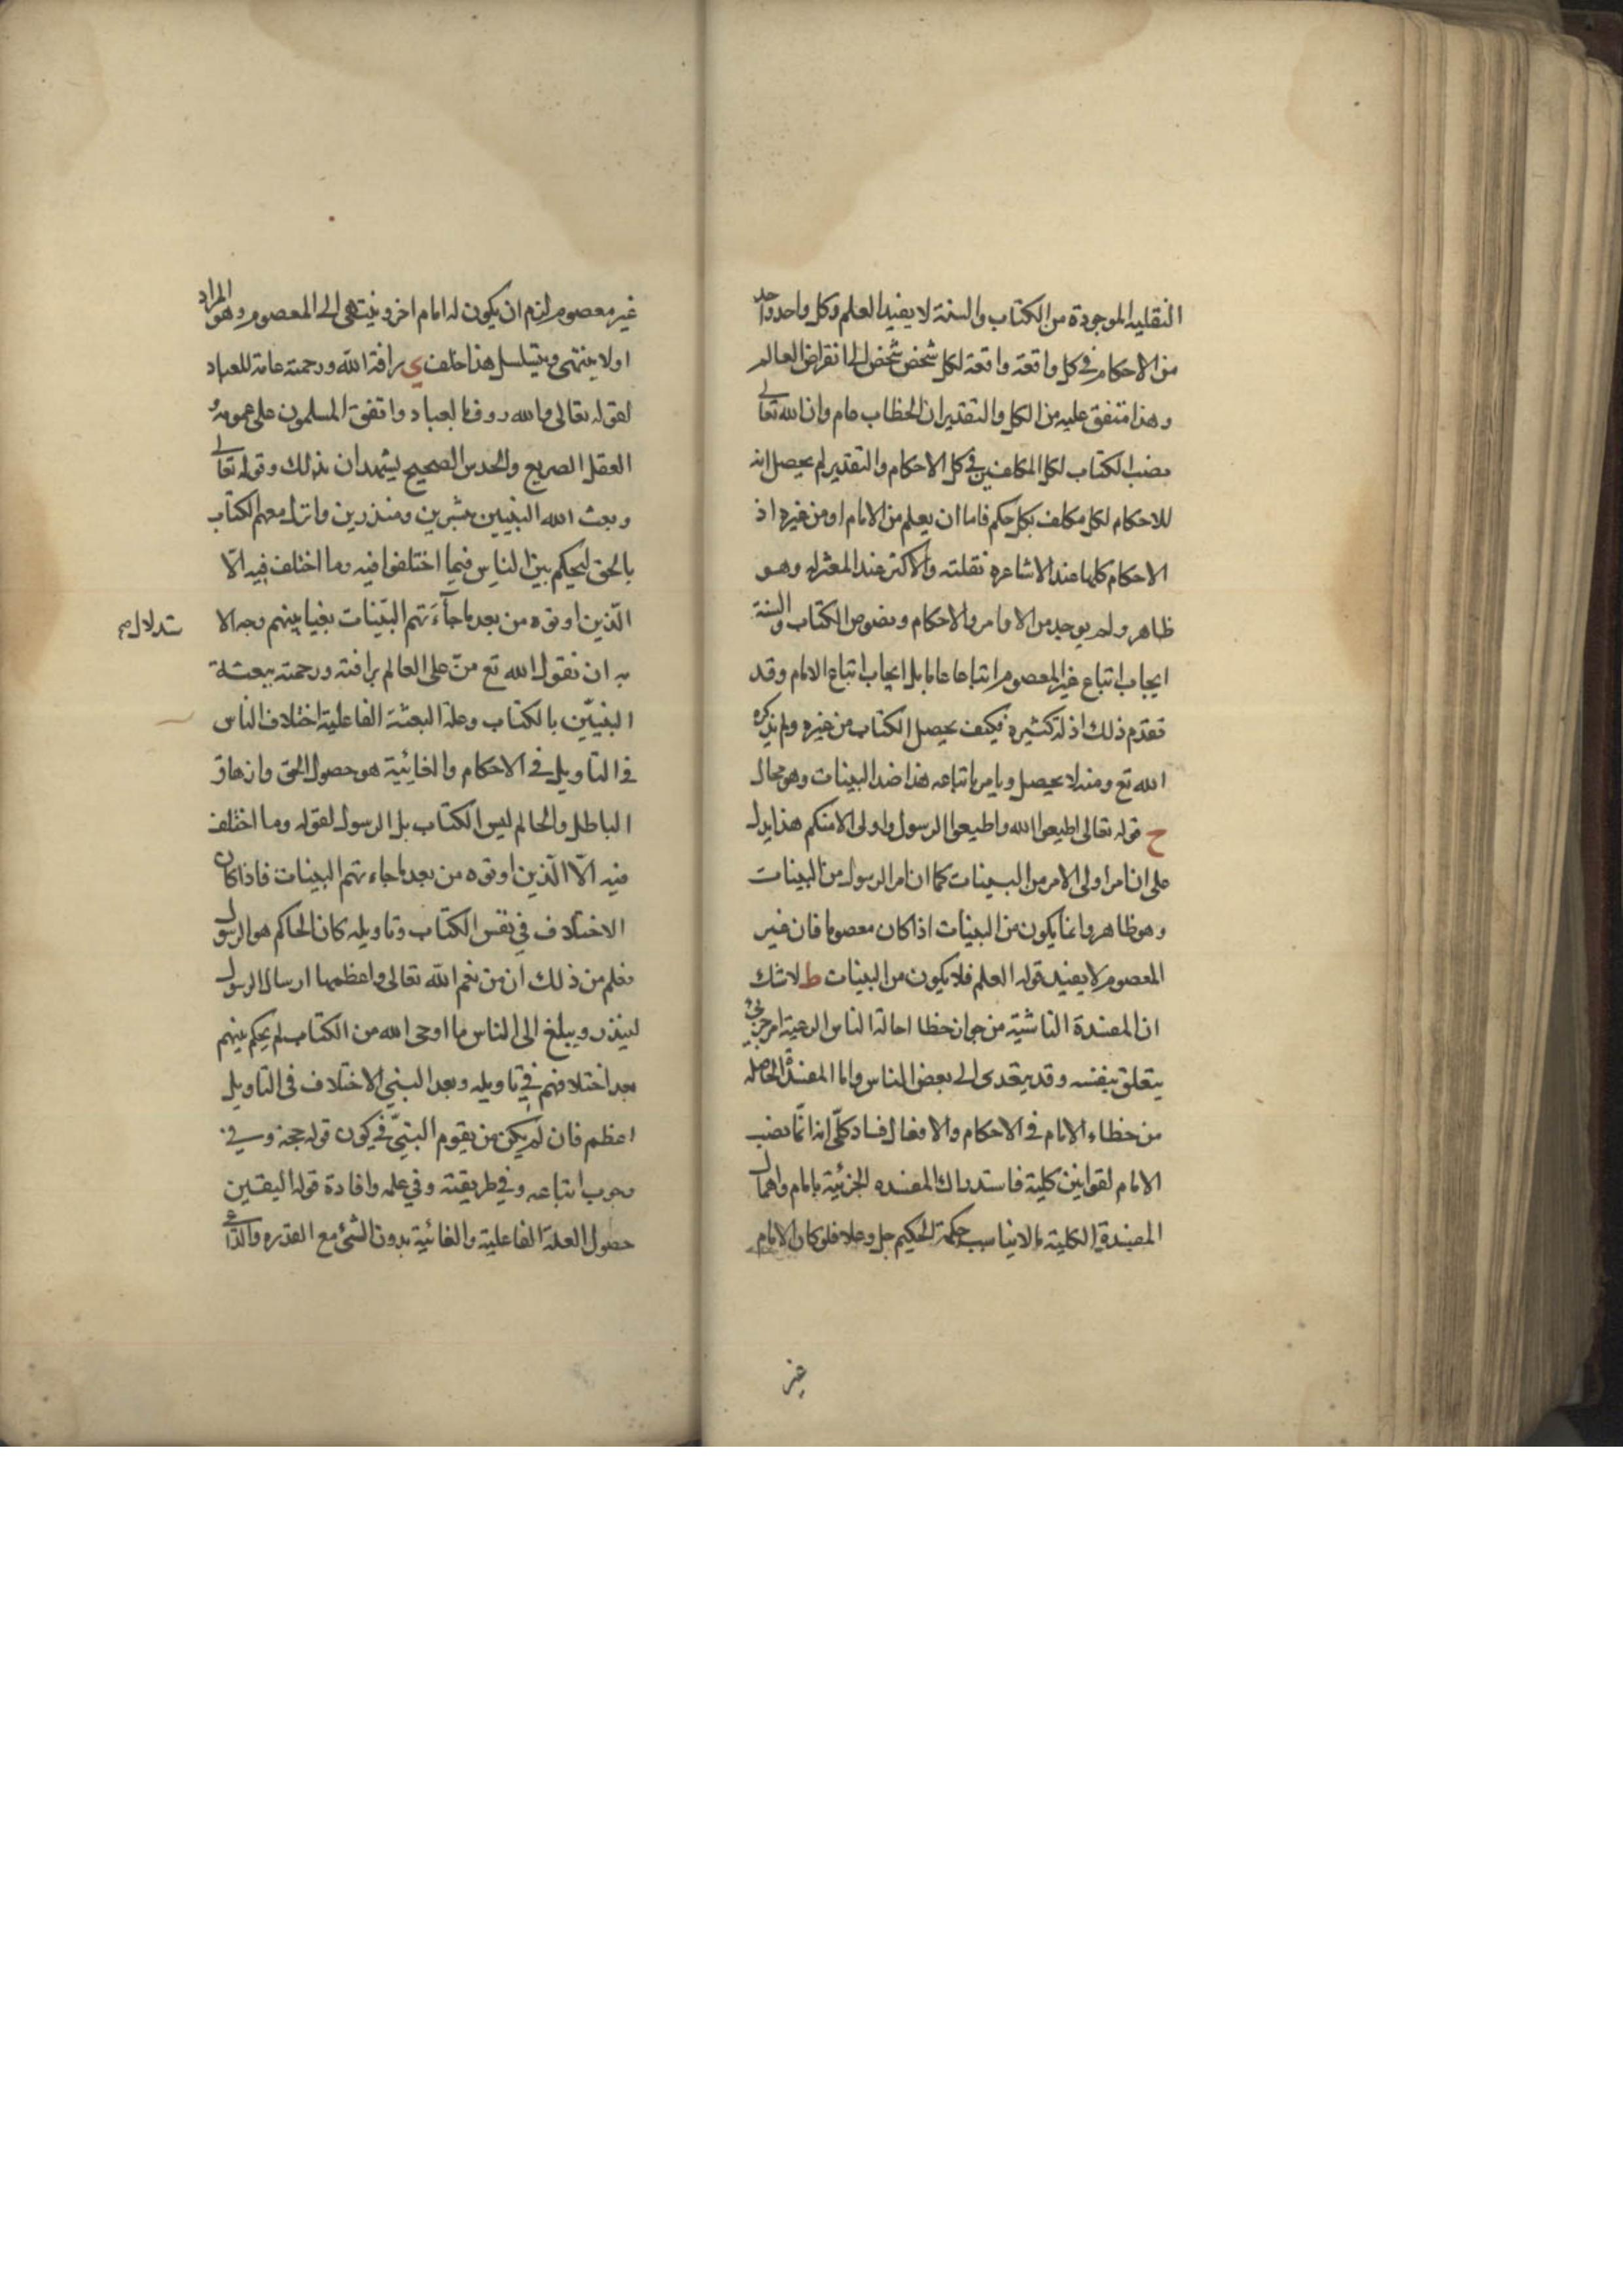 النقليه الموجودة من الكتاب والسنة لا يفيد العلم وكل واحد واحد
من الاحكام في كل واقعة واقعة لكل شخص شخص الى انقراض العالم
وهذا متفق عليه من الكل والتقدير ان الخطاب عام وان الله تعالى
نصب الكتاب لكل المكلفين في كل الاحكام والتقدير لم يحصل انه
للاحكام لكل مكلف بكل حكم فاما ان يعلم من الامام او من غيره اذ
الاحكام كلها عند الاشاعره نقلته والاكثر عند المعتزله وهو
ظاهر ولم يوجد من الاوامر والاحكام ونصوص الكتاب والسنة
ايجاب اتباع غير المعصوم اتباعا عاما بل ايجاب اتباع الامام وقد
تقدم ذلك اذ له كثيره فيكف يحصل الكتاب من غيره ولم يذكره
الله تع ومنه لا يحصل ويامر باتباعه هذا ضد البينات وهو محال
ح قوله تعالى اطيعوا الله واطيعوا الرسول واولى الامنكم هذا يدل
على ان امر اولى الامر من البينات كما ان امر الرسول من البينات
وهو ظاهر وانما يكون من البينات اذا كان معصوما فان غير
المعصوم لا يفيد قوله العلم فلا يكون من البينات ط لا شك
ان المفسدة الناشية من جوان خطا احالة الناس الرعية امر جزئي
يتعلق بنفسه وقد يتعدى الى بعض الناس واما المفسدة الحاصله
من خطاء الامام في الاحكام والافعال فساد كلّى اذ انمّا نصب
الامام لقوانين كلية فاستدراك المفسده الجزئية بامام واهمال
المفسدة الكلية مالايناسب حكمة الحكيم جل وعلا فلو كان الامام
غير
غير معصوم لزم ان يكون له امام اخر وينتهى الى المعصوم وهو المراد
او لا ينتهى ويتسلسل هذا خلف ي رافة الله ورحمته عامة للعباد
لقوله تعالى والله روف بالعباد واتفق المسلمون على عمومه
العقل الصريح والحدس الصحيح يشهدان بذلك وقوله تعالى
وبعث الله النبيين مبشرين ومنذرين وانزل معهم الكتاب
بالحق ليحكم بين الناس فيما اختلفوا فيه وما اختلف فيه الّا
الّذين اوتوه من بعد ما جآءَتهم البيّنات بغيا بينهم وجه الا
ستدلال صح
به ان نقول الله تع منّ على العالم برافته ورحمته ببعثة
النبييّن بالكتاب وعلة البعثة الفاعلية اختلاف الناس
في التاويل في الاحكام والغائية هو حصول الحق وازهاق
الباطل والحاكم ليس الكتاب بل الرسول لقوله وما اختلف
فيه الّا الّذين اوتوه من بعد ما جاءتهم البينات فاذا كان
الاختلاف في نفس الكتاب وتاويله كان الحاكم هو الرسول
فعلم من ذلك ان من نعم الله تعالى واعظمها ارسال الرسول
لينذر ويبلغ الى الناس ما اوحى الله من الكتاب لم يحكم بينهم
بعد اختلافهم في تاويله وبعد النبي الاختلاف في التاويل
اعظم فان لم يكن من يقوم النبيّ في كون قوله حجة وفي
وجوب اتباعه وفي طريقته وفي علمه وافادة قوله اليقين
حصول العلة الفاعلية والغائية بدون الشئ مع القدره والدّاعي